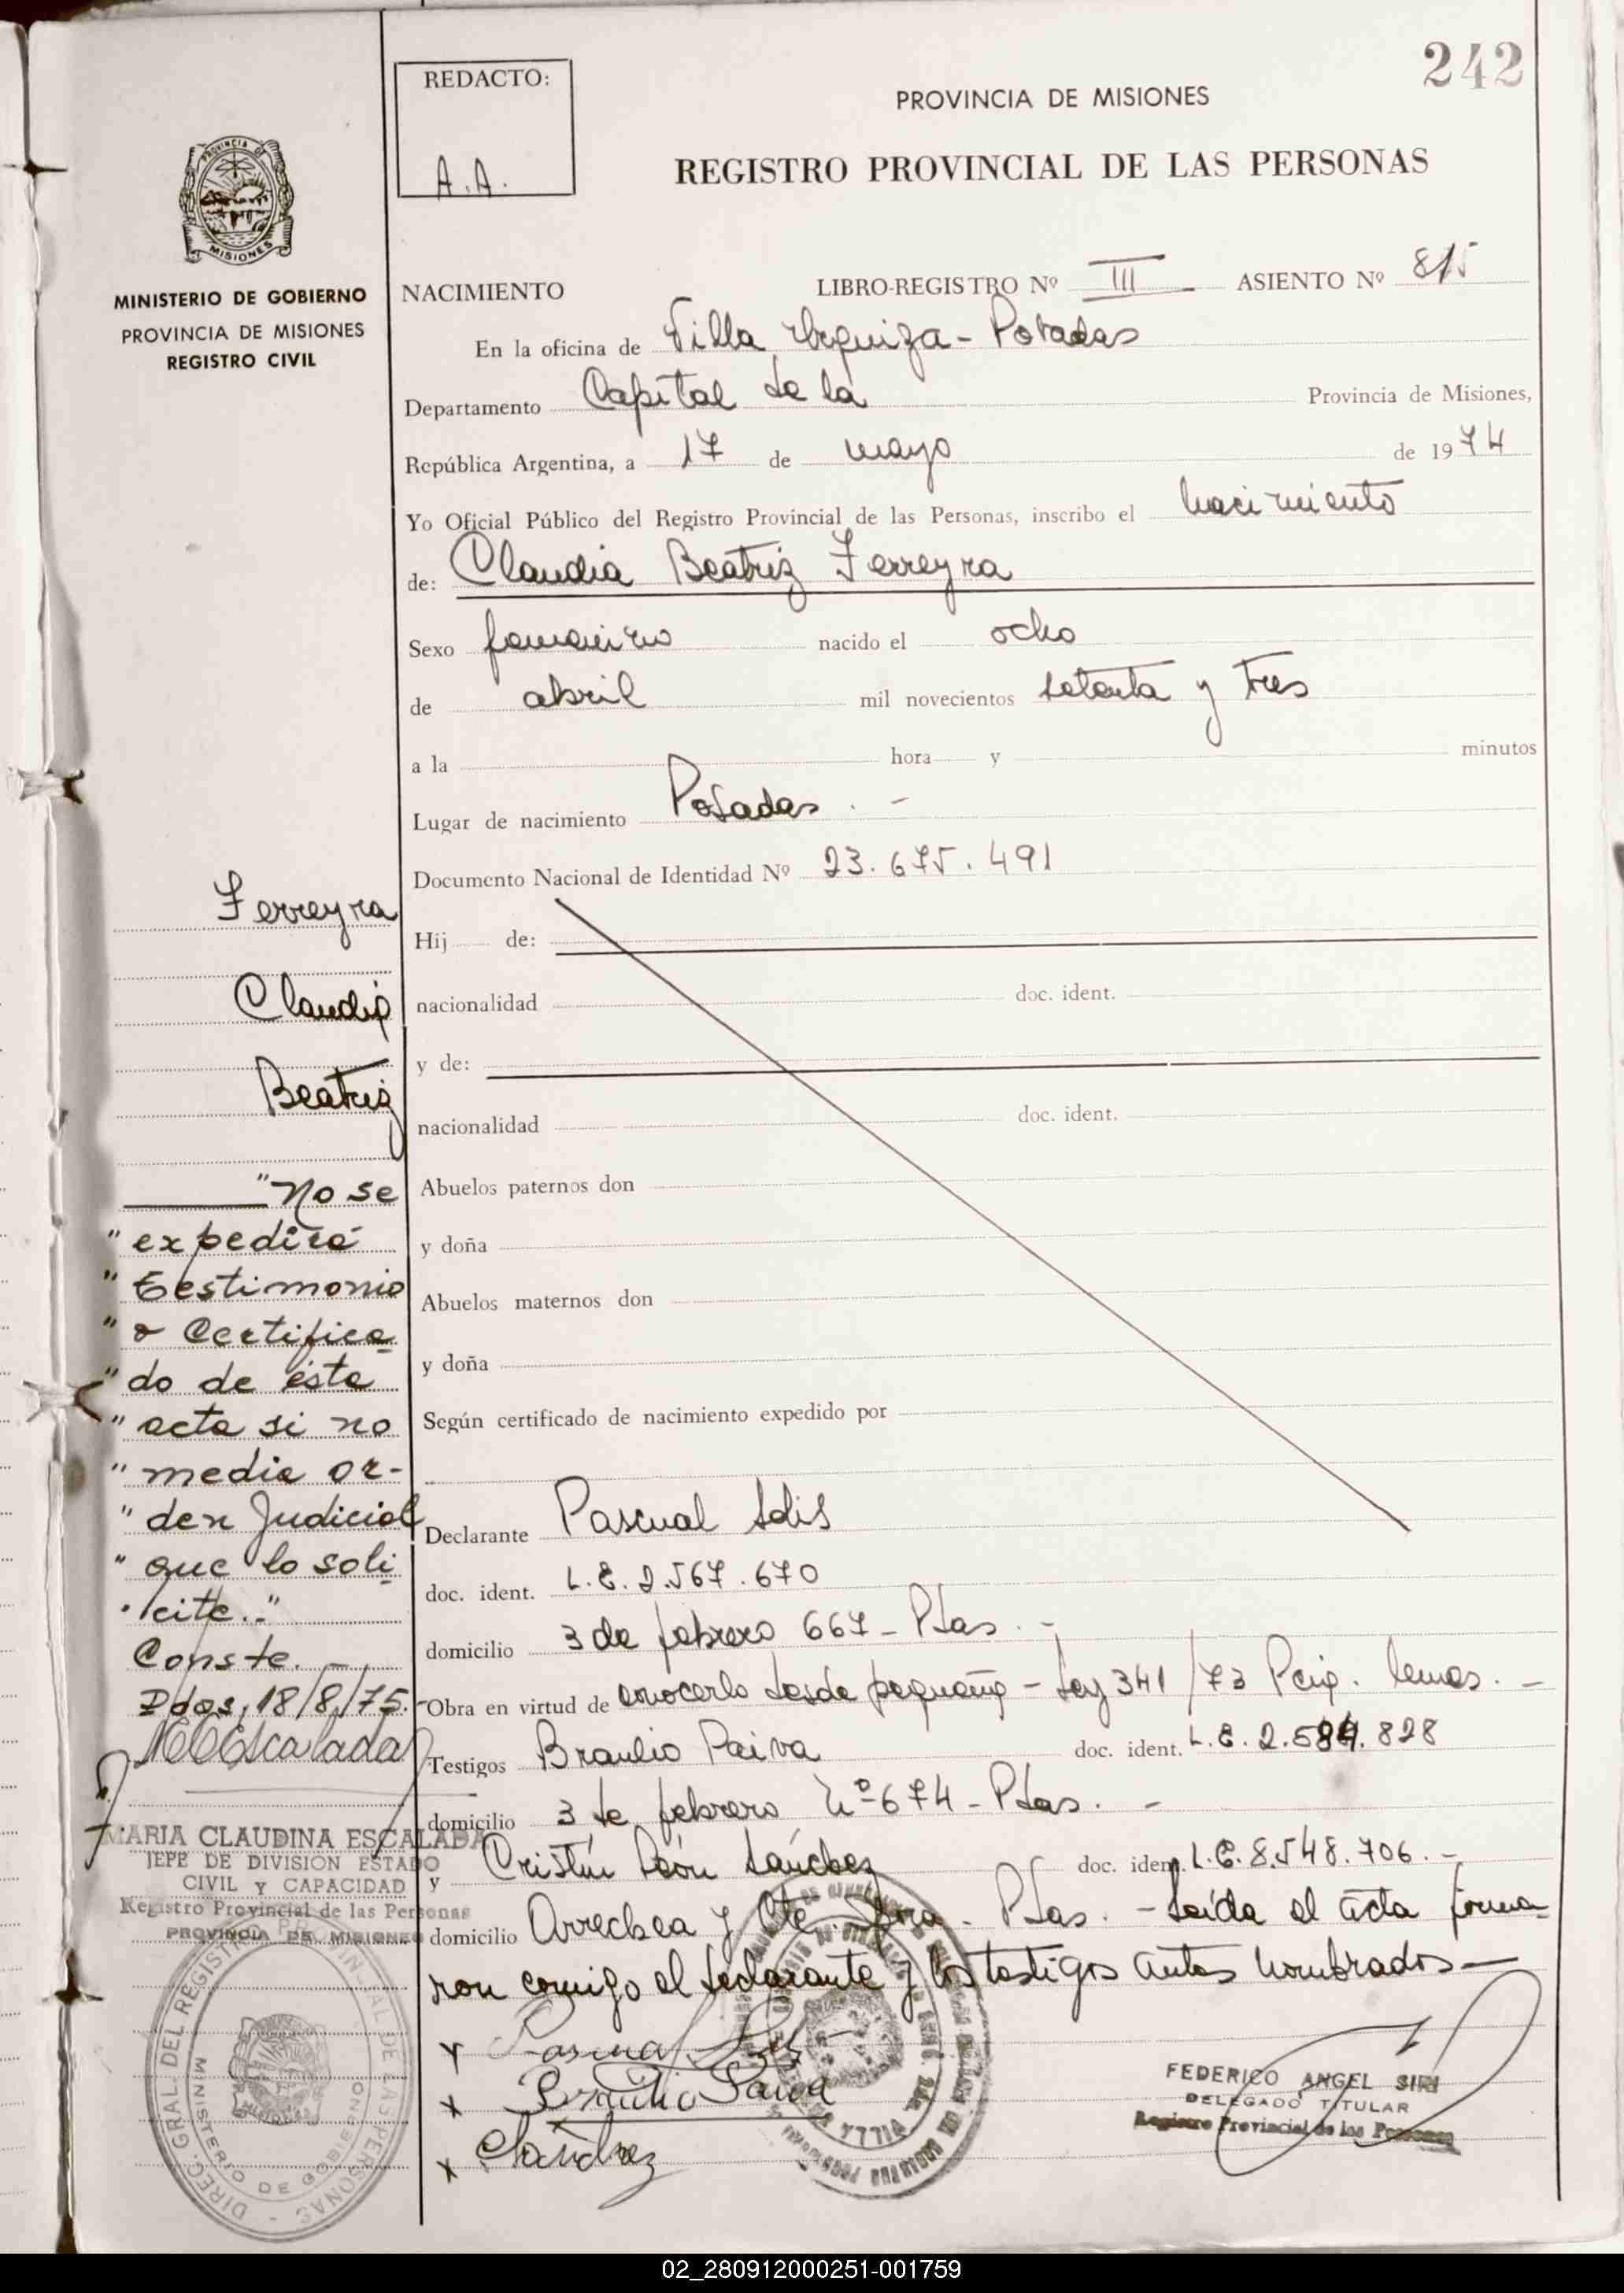 242
REDACTO:
A.A.
PROVINCIA DE MISIONES
REGISTRO PROVINCIAL DE LAS PERSONAS
PROVINCIA DE
MISIONES
MINISTERIO DE GOBIERNO
PROVINCIA DE MISIONES
REGISTRO CIVIL
NACIMIENTO LIBRO-REGISTRO Nº III ASIENTO Nº 815
En la oficina de Villa Urquiza - Posadas
Departamento Capital de la Provincia de Misiones,
República Argentina, a 17 de mayo de 1974
Yo Oficial Público del Registro Provincial de las Personas, inscribo el nacimiento
de: Claudia Beatriz Ferreyra
Sexo femenino nacido el ocho
de abril mil novecientos setenta y tres
a la hora y minutos
Lugar de nacimiento Posadas . -
Documento Nacional de Identidad Nº 23.675.491
Hij de:
nacionalidad doc. ident.
y de:
nacionalidad doc. ident.
Abuelos paternos don
y doña
Abuelos maternos don
y doña
Según certificado de nacimiento expedido por
Declarante Pascual Solis
doc. ident. L.E. 2.567.670
domicilio 3 de febrero 667 - Pdas. -
Obra en virtud de conocerlo desde pequeño - Ley 341/73
Testigos Braulio Paiva doc. ident. L.E. 2.584.828
domicilio 3 de febrero Nº 674 - Pdas. -
y Cristín León Sánchez doc. ident. L.E. 8.548.706. -
domicilio Arrechea y Pdas. - Leída el acta firma-
ron comigo el declarante y los testigos antes nombrados -
x Pascual Solis
x Braulio Paiva
x Sánchez
FEDERICO ANGEL SIRI
DELEGADO TITULAR
Registro Provincial de las Personas
Ferreyra
Claudia
Beatriz
"No se
"expedirá
"testimonio
"o Certifica
"do de ésta
"acta si no
"media or-
"den Judicial
"que lo soli
"cite.."
Conste. -
Pdas, 18/8/75.-
MCEscalada
MARIA CLAUDINA ESCALADA
JEFE DE DIVISIÓN ESTADO
CIVIL Y CAPACIDAD
Registro Provincial de las Personas
PROVINCIA DE MISIONES
DIREC. GRAL. DEL REGISTRO PROVINCIAL DE LAS PERSONAS
MINISTERIO DE GOBIERNO
02_280912000251-001759